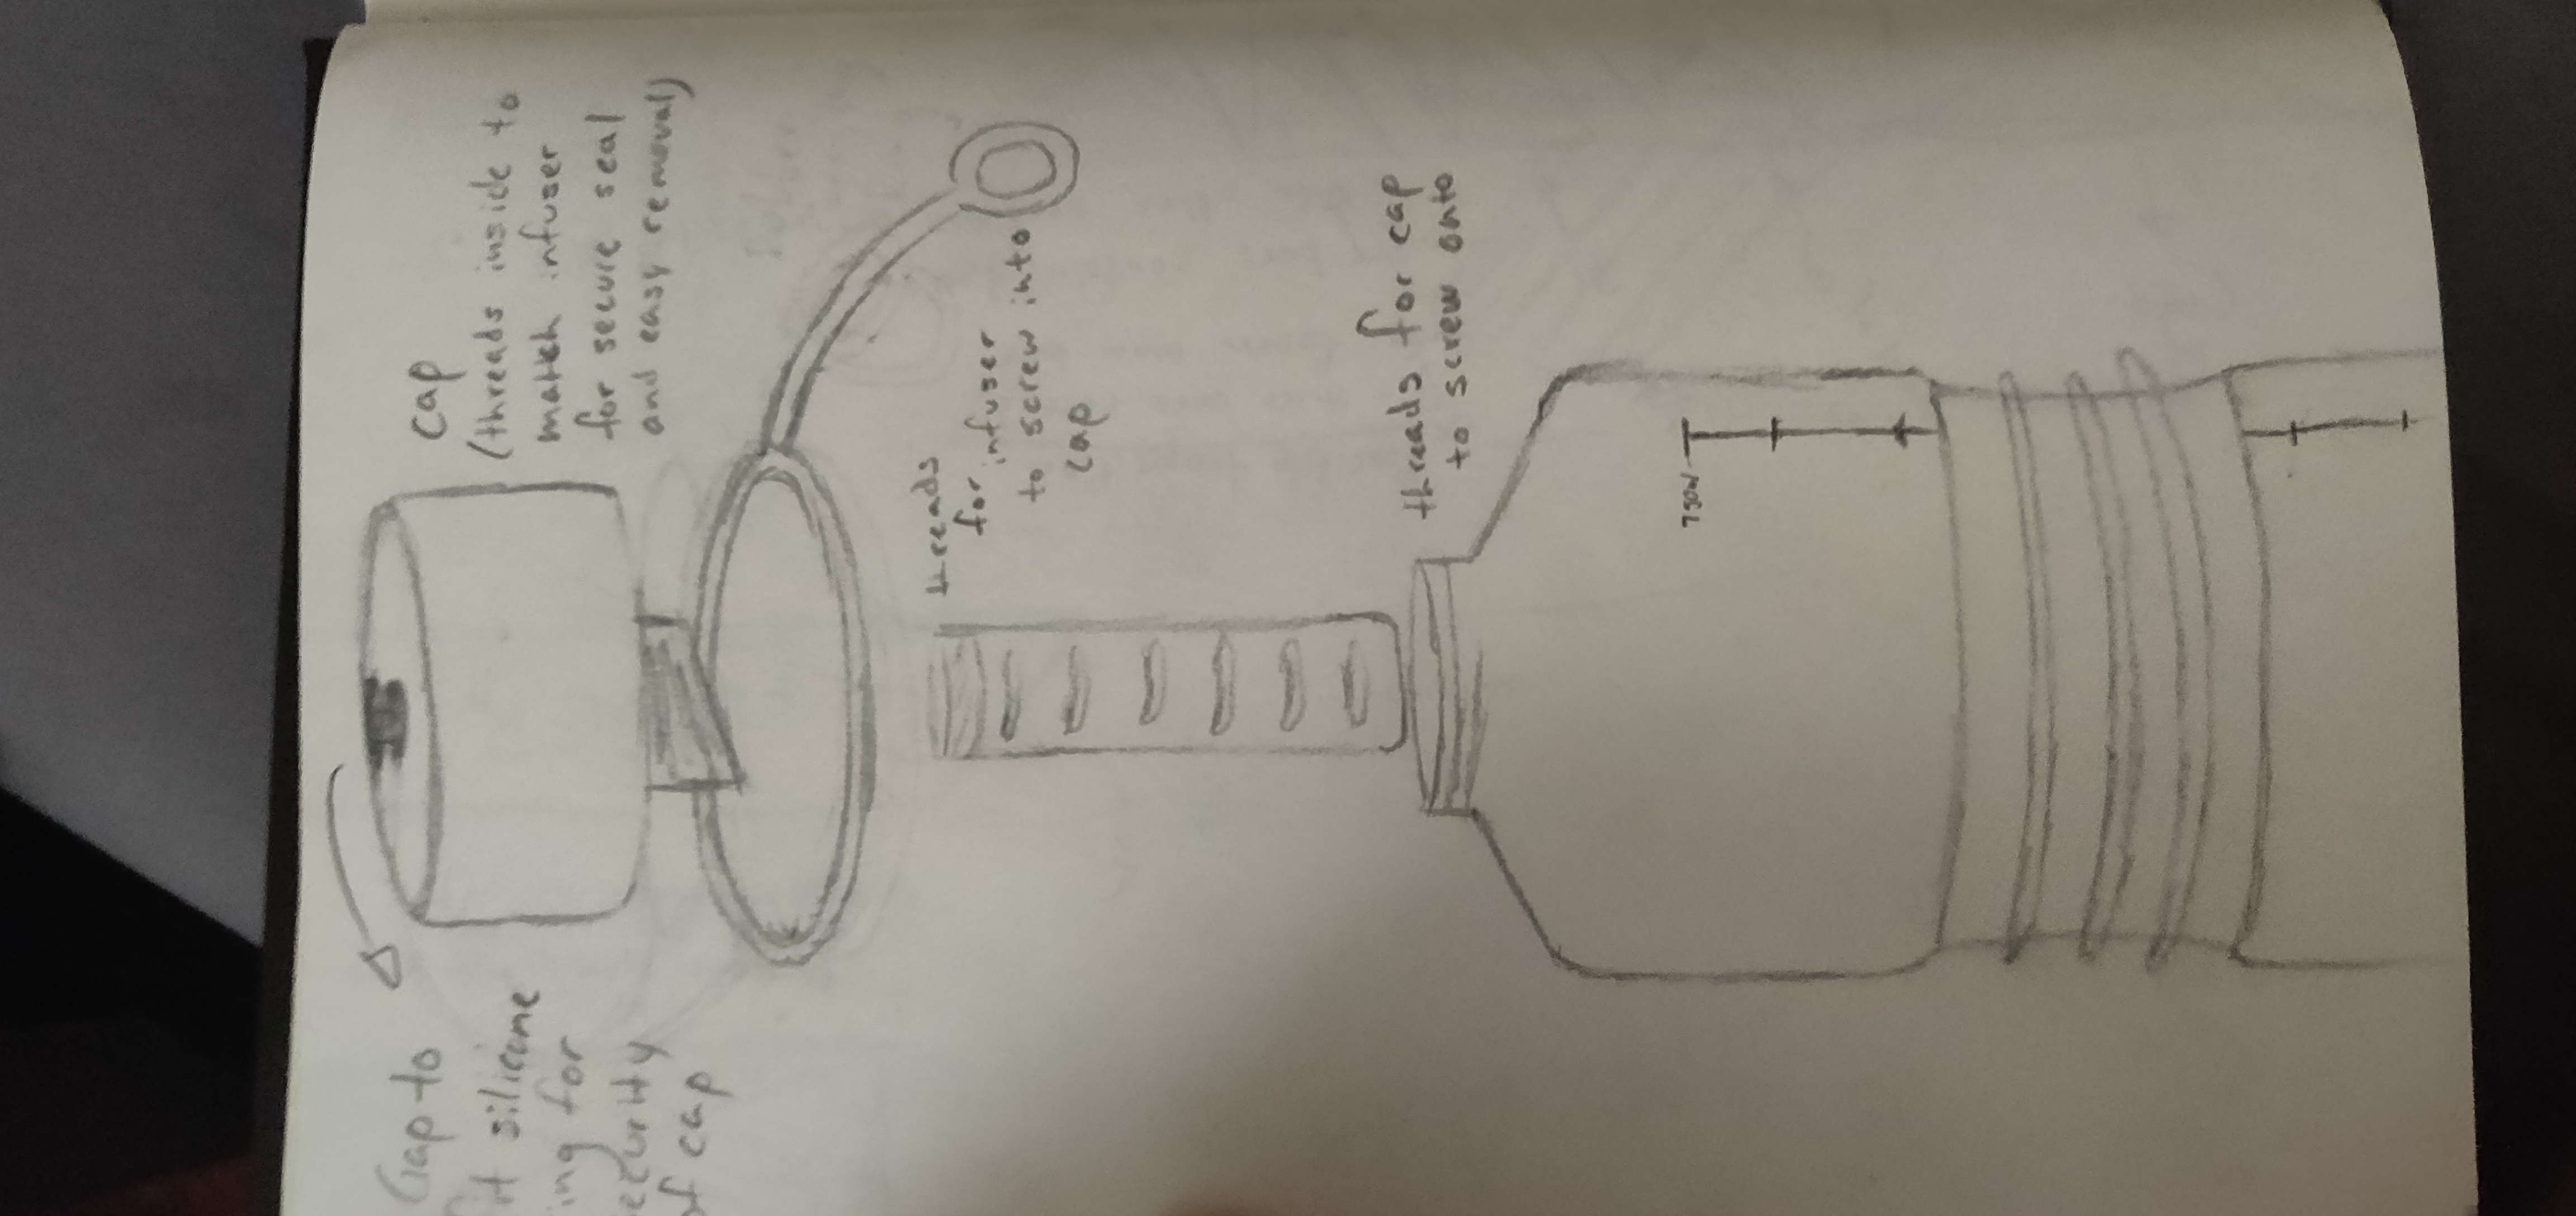 Gap to
fit silicone
ing for
ecurity
of cap
cap
(threads inside to
match infuser
for secure seal
and easy removal)
threads
for infuser
to screw into
cap
threads for cap
to screw onto